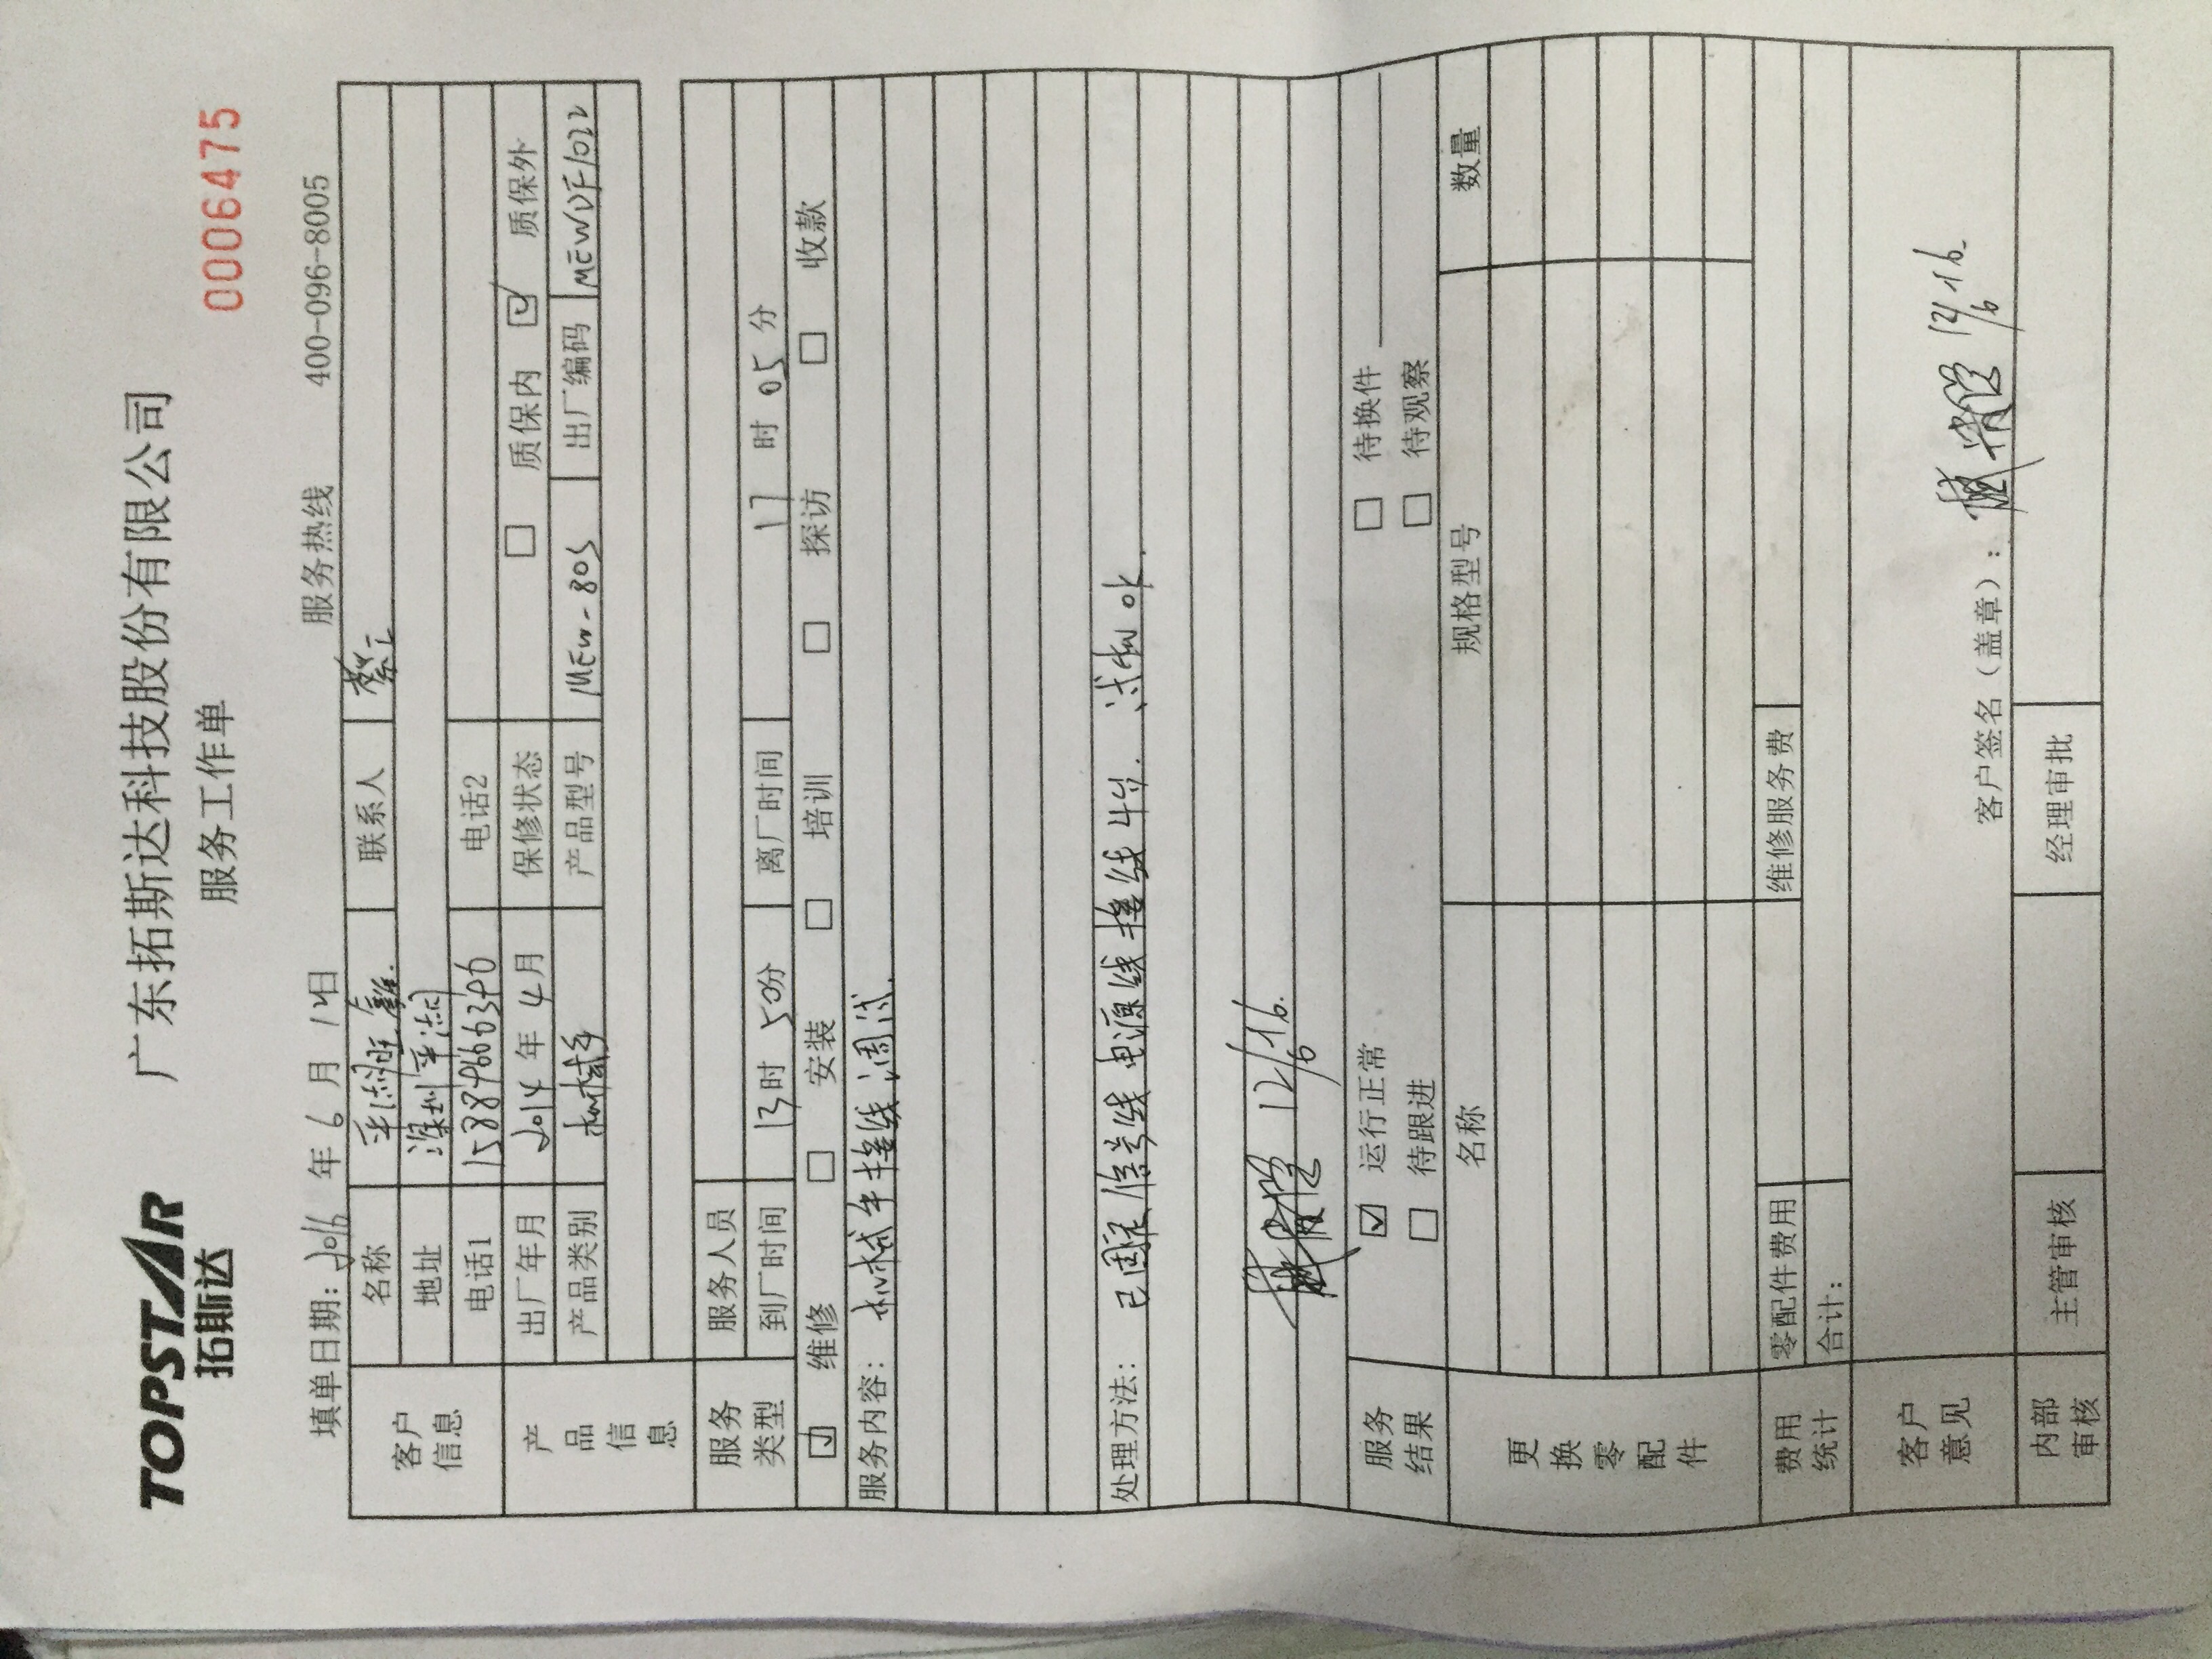 TOPSTAR
拓斯达
广东拓斯达科技股份有限公司
服务工作单
0006475
填单日期: 2016 年 6 月 日
服务热线 400-096-8005
客户信息
名称
联系人 蔡工
地址 深圳平湖
电话1
电话2
产品信息
出厂年月 2014 年 4月
保修状态 □ 质保内 ☑ 质保外
产品类别 机械手
产品型号 MEW-80S
出厂编码 MEWDF1022
服务类型
服务人员
到厂时间 13时 50分
离厂时间 17 时 05 分
☑ 维修 □ 安装 □ 培训 □ 探访 □ 收款
服务内容: 机械手接线,调试.
处理方法: 已固定信号线 电源线 接线 . 试机 ok.
12/6 16.
服务结果
☑ 运行正常 □ 待换件
□ 待跟进 □ 待观察
更换零配件
名称 规格型号 数量
费用统计
零配件费用 维修服务费
合计:
客户意见
客户签名（盖章）: 12/6 16.
内部审核
主管审核 经理审批